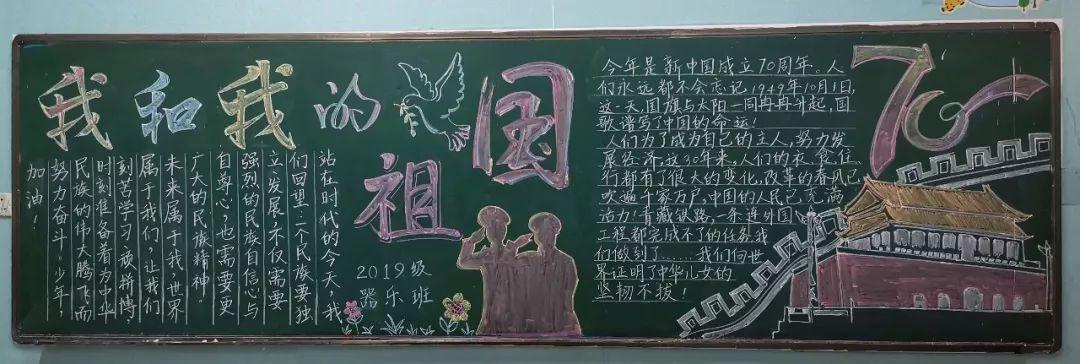 我和我的祖国
站在时代的今天、我
们回望:一个民族要独
立、发展、不仅需要
强烈的民族自信心与
自尊心,也需要更
广大的民族精神。
未来属于我、世界
属于我们,让我们
刻苦学习、顽拼博,
时刻准备着为中华
民族的伟大腾飞而
努力奋斗!少年,
加油!
2019级
器乐班
今年是新中国成立70周年。人
们永远都不会忘记1949年10月1日,
这一天国旗与太阳一同冉冉升起,国
歌谱写了中国的命运!
人们为了成为自己的主人,努力发
展经济,这30年来,人们的衣、食、住、
行都有了很大的变化,改革的春风已
吹遍千家万户,中国的人民已充满
活力!青藏铁路,一条连外国
工程都完成不了的任务,我
们做到了……我们向世
界证明了中华儿女的
坚韧不拔!
70